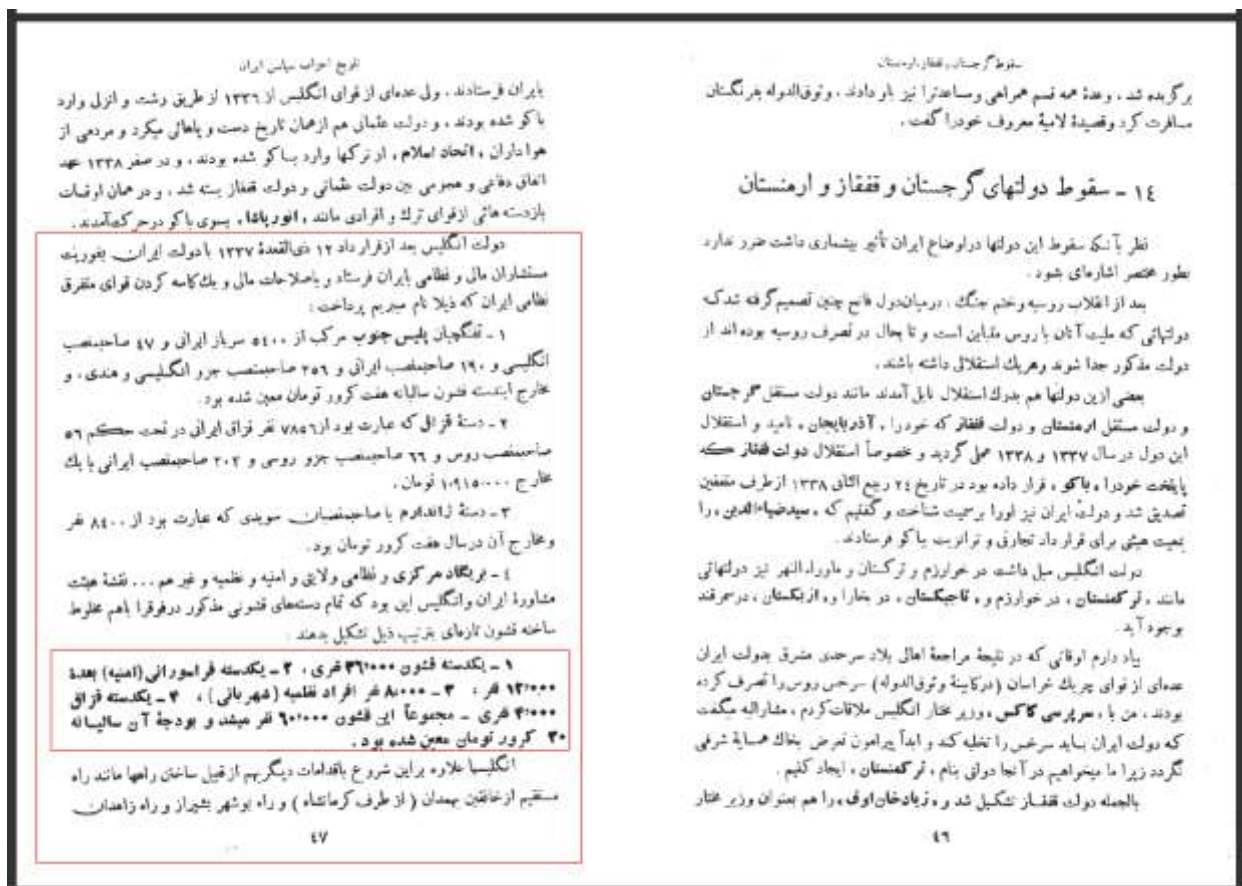 سقوط گرجستان و قفقاز و ارمنستان
برگزیده شد ، وعدهٔ همه قسم همراهی ومساعدترا نیز باو دادند . وثوق‌الدوله بفرنگستان
مسافرت کرد وقصیدهٔ لامیهٔ معروف خودرا گفت .
۱٤ ـ سقوط دولتهای گرجستان و قفقاز و ارمنستان
نظر بآنکه سقوط این دولتها دراوضاع ایران تأثیر بیشماری داشت ضرر ندارد
بطور مختصر اشاره‌ای شود .
بعد از انقلاب روسیه وختم جنگ ، درمیان‌دول فاتح چنین تصمیم‌گرفته شدکه
دولتهائی که ملیت آنان با روس متباین است و تا بحال در تصرف روسیه بوده اند از
دولت مذکور جدا شوند وهریك استقلال داشته باشند .
بعضی ازین دولتها هم بدرك استقلال نایل آمدند مانند دولت مستقل گرجستان
و دولت مستقل ارمنستان و دولت قفقاز که خودرا ، آذربایجان ، نامید و استقلال
این دول درسال ۱۳۳۷ و ۱۳۳۸ عملی گردید و خصوصاً استقلال دولت قفقاز که
پایتخت خودرا ، باکو ، قرار داده بود در تاریخ ۲٤ ربیع الثانی ۱۳۳۸ ازطرف متفقین
تصدیق شد و دولت ایران نیز اورا برسمیت شناخت و گفتیم که ، سیدضیاءالدین ، را
بمعیت هیئتی برای قرار داد تجارتی و ترانزیت بباکو فرستادند .
دولت انگلیس میل داشت در خوارزم و ترکستان و ماوراءالنهر نیز دولتهائی
مانند ، ترکمنستان ، در خوارزم و ، تاجیکستان ، در بخارا و ، ازبکستان ، درسمرقند
بوجود آید .
بیاد دارم اوقاتی که در نتیجهٔ مراجعهٔ اهالی بلاد سرحدی مشرق بدولت ایران
عده‌ای از قوای چریك خراسان (درکابینهٔ وثوق‌الدوله) سرخس روس را تصرف کرده
بودند ، من با ، سرپرسی کاکس ، وزیر مختار انگلیس ملاقات‌کردم ، مشارالیه میگفت
که دولت ایران باید سرخس را تخلیه کند و ابداً پیرامون تعرض بخاك همسایهٔ شرقی
نگردد زیرا ما میخواهیم در آنجا دولتی بنام ، ترکمنستان ، ایجاد کنیم .
بالجمله دولت قفقاز تشکیل شد و ، زیادخان‌اوف ، را هم بعنوان وزیر مختار
٤٦
تاریخ احزاب سیاسی ایران
بایران فرستادند . ولی عده‌ای از قوای انگلیس از ۱۳۳٦ از طریق رشت و انزلی وارد
باکو شده بودند ، و دولت عثمانی هم ازهمان تاریخ دست و پاهائی میکرد و مردمی از
هواداران ، اتحاد اسلام ، از ترکها وارد باکو شده بودند ، و در صفر ۱۳۳۸ عهد
اتفاق دفاعی و هجومی بین دولت عثمانی و دولت قفقاز بسته شد ، و در همان اوقات
بازدسته هائی ازقوای ترك و افرادی مانند ، انور پاشا ، بسوی باکو درحرکت‌آمدند .
دولت انگلیس بعد ازقرار داد ۱۲ ذی‌القعدهٔ ۱۳۳۷ با دولت ایران بفوریت
مستشاران مالی و نظامی بایران فرستاد و باصلاحات مالی و یك‌کاسه کردن قوای متفرق
نظامی ایران که ذیلا نام میبریم پرداخت :
۱ ـ تفنگچیان پلیس جنوب مرکب از ٥٤۰۰ سرباز ایرانی و ٤۷ صاحبمنصب
انگلیسی و ۱۹۰ صاحبمنصب ایرانی و ۲٥٦ صاحبمنصب جزو انگلیسی و هندی ، و
مخارج ایندسته قشون سالیانه هفت کرور تومان معین شده بود .
۲ ـ دستهٔ قزاق که عبارت بود از ۷۸٥٦ نفر قزاق ایرانی در تحت حکم ٥٦
صاحبمنصب روس و ٦٦ صاحبمنصب جزو روسی و ۲۰۲ صاحبمنصب ایرانی با یك
مخارج ۱۰۹۱٥۰۰۰۰ تومان .
۳ ـ دستهٔ ژاندارم با صاحبمنصبان سویدی که عبارت بود از ۸٤۰۰ نفر
ومخارج آن درسال هفت کرور تومان بود .
٤ ـ بریگاد مرکزی و نظامی ولایتی و امنیه و نظمیه و غیر هم ... نقشهٔ هیئت
مشاورهٔ ایران وانگلیس این بود که تمام دسته‌های قشونی مذکور درفوق‌را باهم مخلوط
ساخته قشون تازه‌ای بترتیب ذیل تشکیل بدهند :
۱ ـ یکدسته قشون ۳٦۰۰۰ نفری ، ۲ ـ یکدسته قراسورانی (امنیه) بعدهٔ
۱۲۰۰۰ نفر ، ۳ ـ ۸۰۰۰ نفر افراد نظمیه (شهربانی) ، ٤ ـ یکدسته قزاق
٤۰۰۰ نفری ـ مجموعاً این قشون ٦۰۰۰۰ نفر میشد و بودجهٔ آن سالیانه
۳۰ کرور تومان معین شده بود .
انگلیسها علاوه براین شروع باقدامات دیگرهم ازقبیل ساختن راهها مانند راه
مستقیم ازخانقین بهمدان (از طرف کرمانشاه) و راه بوشهر بشیراز و راه زاهدان
٤۷